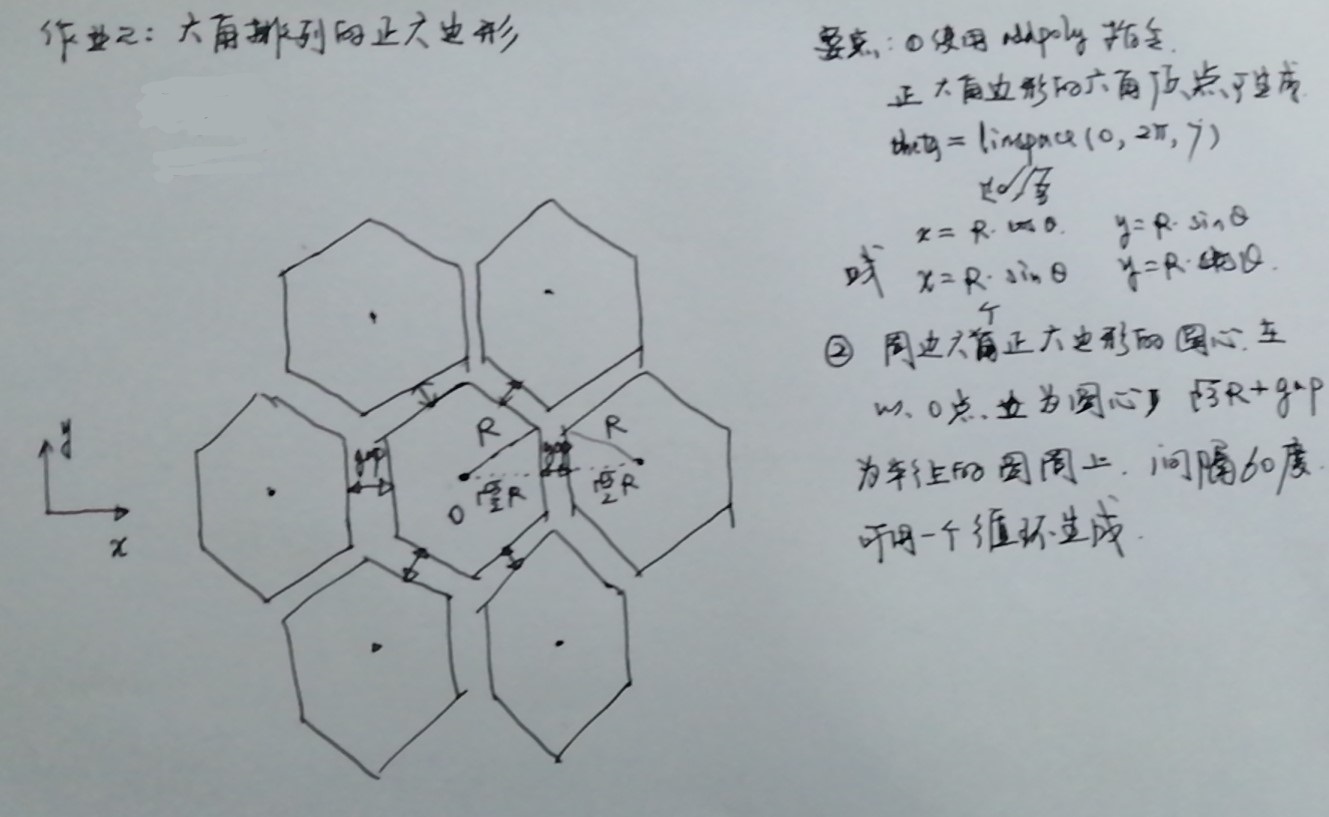 作业2：六角排列的正六边形
要点：①使用addpoly指令
正六角边形的六角顶点可生成
theta = linspace(0, 2π, 7)
x = R·cosθ. y = R·sinθ
或 x = R·sinθ y = R·cosθ.
个
② 周边六角正六边形的圆心在
以O点为圆心 √3R+gap
为半径的圆周上，间隔60度
可用一个循环生成.
gap
R
gap
R
O
√3/2 R
√3/2 R
y
x